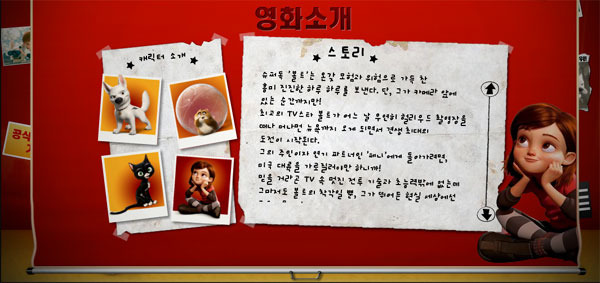 영화소개
캐릭터 소개
스토리
슈퍼독 '볼트'는 온갖 모험과 위험으로 가득 찬
흥미 진진한 하루 하루를 보낸다. 단, 그가 카메라 앞에
있는 순간까지만!
최고의 TV스타 볼트가 어느 날 우연히 헐리우드 촬영장을
떠나 머나먼 뉴욕까지 오게 되면서 견생 최대의
도전이 시작된다.
그의 주인이자 연기 파트너인 '페니'에게 돌아가려면,
미국 대륙을 가로질러야만 하니까!
믿을 거라곤 TV 속 멋진 전투 기술과 초능력밖에 없는데
그마저도 볼트의 착각일 뿐, 그가 뛰어든 현실 세상에선
공식